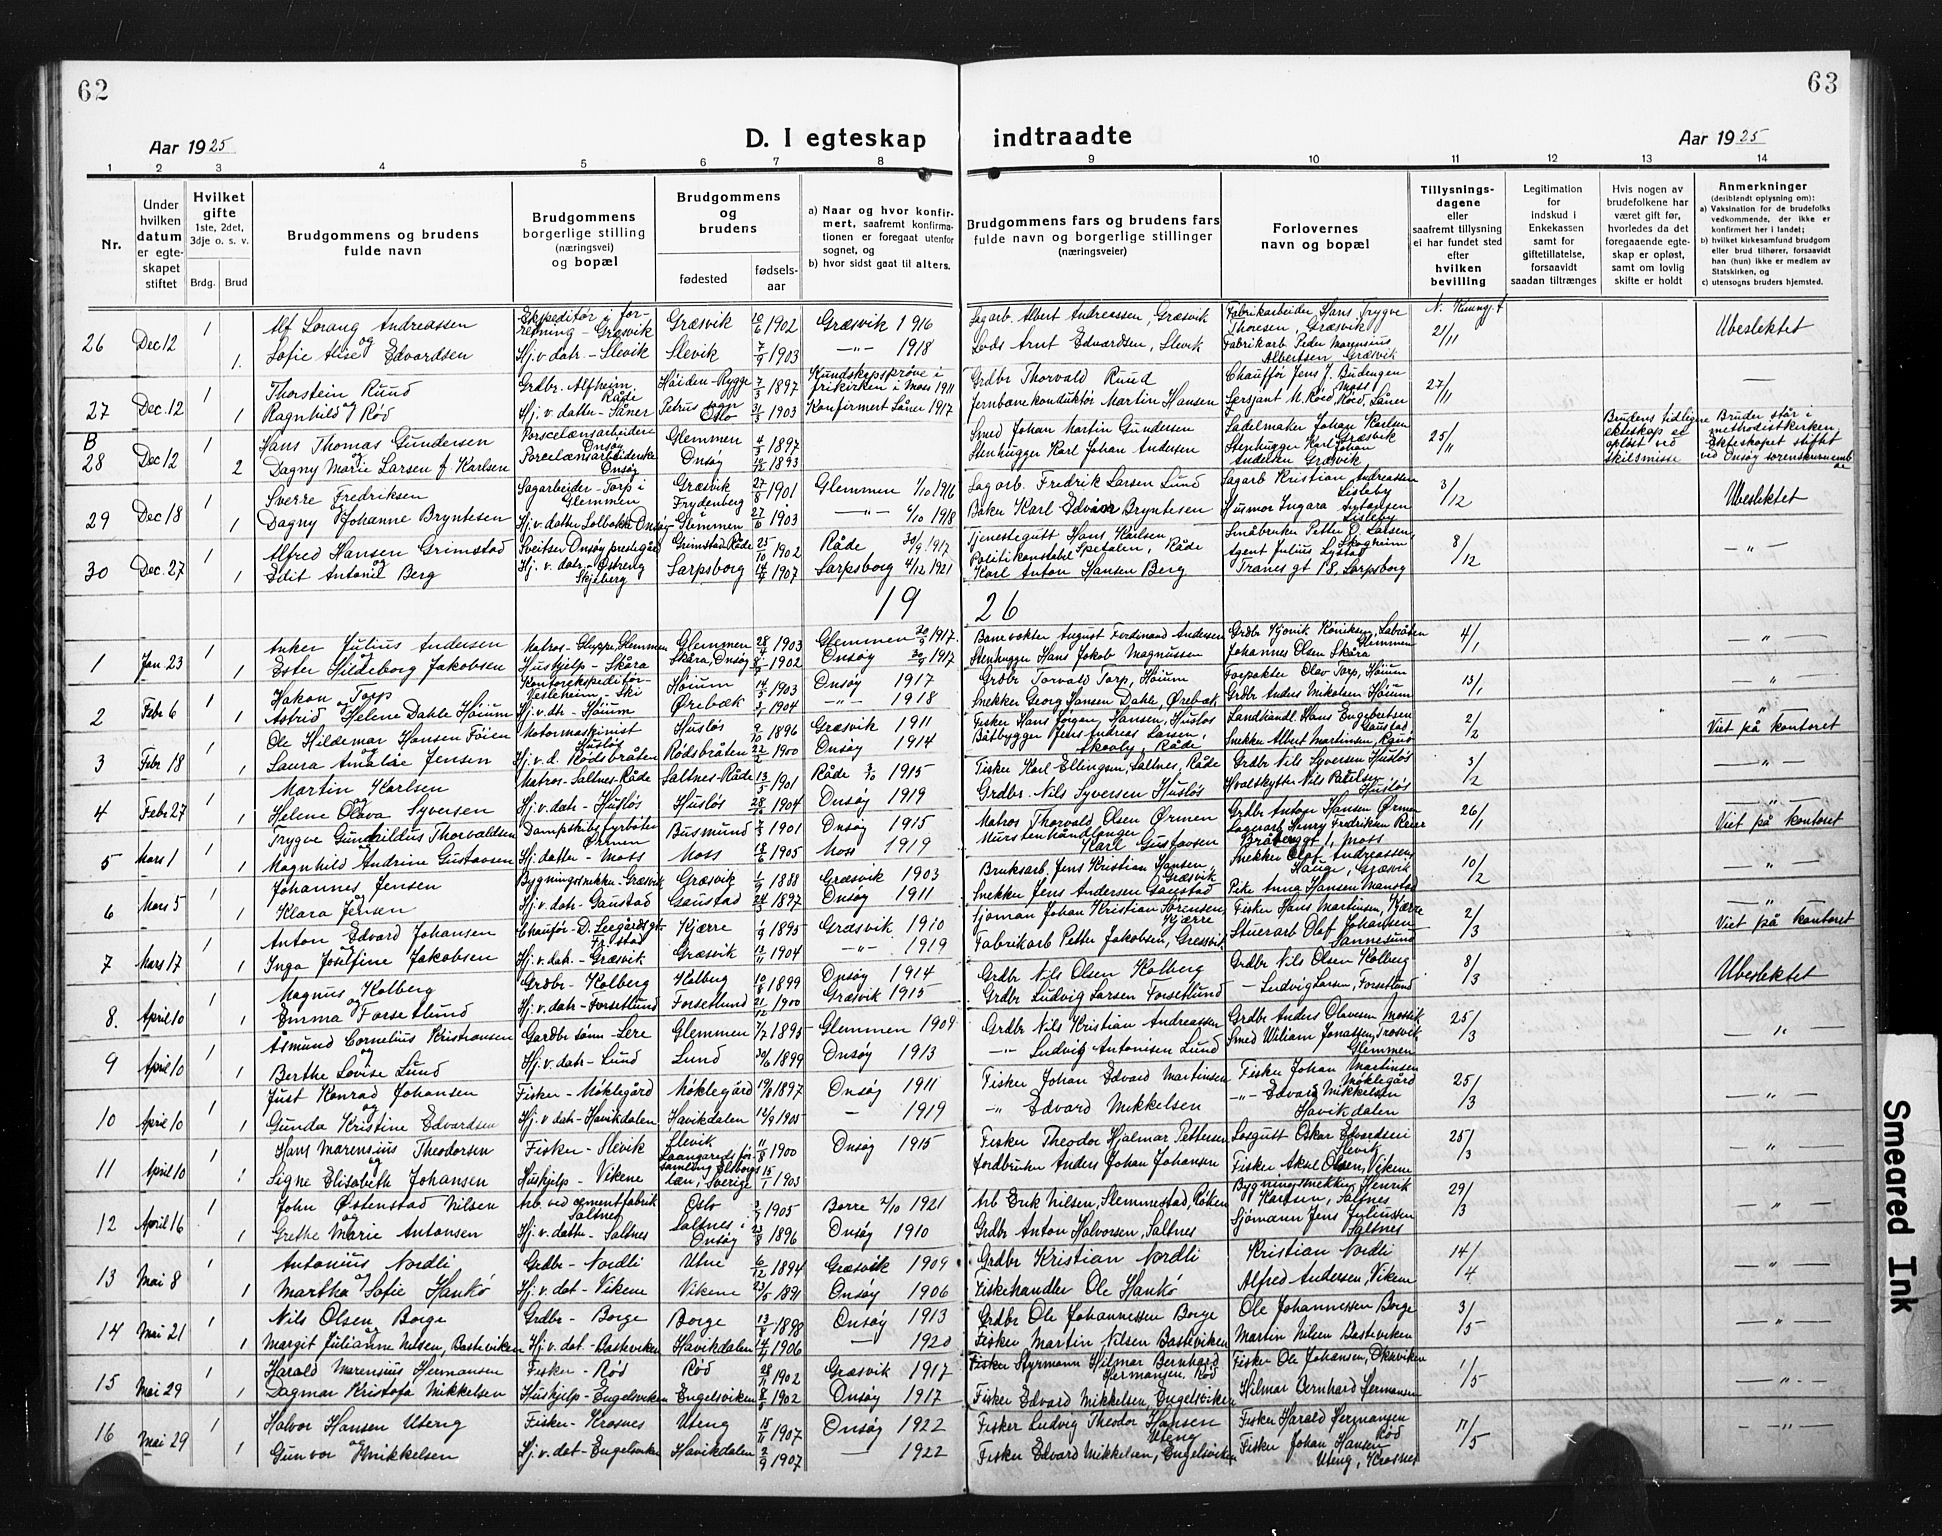 62
63
Aar 1925
D. I egteskap indtraadte
Aar 1925
1 2 3 4 5 6 7 8 9 10 11 12 13 14
Nr.
Under hvilken datum er egteskapet stiftet
Hvilket gifte 1ste, 2det, 3dje o. s. v.
Brdg. Brud
Brudgommens og brudens fulde navn
Brudgommens borgerlige stilling (næringsvei) og bopæl
Brudgommens og brudens
fødested fødselsaar
a) Naar og hvor konfirmert, saafremt konfirmationen er foregaat utenfor sognet, og
b) hvor sidst gaat til alters.
Brudgommens fars og brudens fars fulde navn og borgerlige stillinger (næringsveier)
Forlovernes navn og bopæl
Tillysningsdagene eller saafremt tillysning ei har fundet sted efter hvilken bevilling
Legitimation for indskud i Enkekassen samt for giftetillatelse, forsaavidt saadan tiltrænges
Hvis nogen av brudefolkene har været gift før, hvorledes da det foregaaende egteskap er opløst, samt om lovlig skifte er holdt
Anmerkninger (deriblendt oplysning om):
a) Vaksination for de brudefolks vedkommende, der ikke er konfirmert her i landet;
b) hvilket kirkesamfund brudgom eller brud tilhører, forsaavidt han (hun) ikke er medlem av Statskirken, og
c) utensogns bruders hjemsted.
26 Dec 12 1 Alf Lorang Andreassen Ekspeditør i forretning - Græsvik Græsvik 10/6 1902 Græsvik 1916 Sagarb. Albert Andreassen, Græsvik Fabrikarbeider Hans Trygve Thoresen, Græsvik 21/11 Ubeslektet
1. og Sofie Alise Edvardsen Hj. v. datr. - Slevik Slevik 7/9 1903 -"- 1918 Lods Arnt Edvardsen, Slevik Fabrikarb. Peder Mannsius Albertsen Græsvik
27 Dec. 12 1 Thorstein Ruud Grdbr. Alfheim, Råde Høiden - Rygge 7/3 1897 Kundskapsprøve i frikirken i Moss 1911 Grdbr Thorvald Ruud Chauffør Jens J. Budengen Moss 27/11 —
1 og Ragnhild Rød Hj. v. datter - Såner Petrus sogn Oslo 31/3 1903 Konfirmert Såner 1917 Jernbanekonduktør Martin Hansen Sersjant M. Røed, Røed, Såner
B
28 Dec 12 1 Hans Thomas Gundersen Porselænsarbeider Onsøy Glemmen 4/5 1897 Smed Johan Martin Gundersen Sadelmaker Johan Karlsen Græsvik 25/11
2 og Dagny Marie Larsen f. Karlsen Onsøy Onsøy 10/12 1893 Stenhugger Karl Johan Andersen Stenhugger Karl Johan Andersen Græsvik
Brudens tidligere ekteskap er opløst ved skilsmisse
Bruden står i methodistkirken, Ekteskapet stiftet ved Onsøy sorenskriverembede
29 Dec 18 1 Sverre Fredriksen Sagarbeider - Torp i Glemmen Græsvik 27/8 1901 Glemmen 1/10 1916 Sagarb. Fredrik Larsen Lund Sagarb Kristian Andreassen Lisleby 3/12 Ubeslektet
1 og Dagny Johanne Bryntesen Hj. v. datter Solbakk Onsøy Frydenberg Glemmen 27/6 1903 -"- 6/10 1918 Baker Karl Edvin Bryntesen Husmor Ingara Lisleby
30 Dec. 27 1 Alfred Hansen Grimstad Sveitser Onsøy prestegård Grimstad - Råde 25/10 1902 Råde 30/9 1917 Tjenestegutt Hans Karlsen Spetalen, Råde Småbruker Petter D. Larsen, Skogheim 8/12 -"-
1 og Edit Antonie Berg Hj. v. datr. Østreng Skjeberg Sarpsborg 14/4 1907 Sarpsborg 4/12 1921 Politikonstabel Karl Anton Hansen Berg Agent Julius Lystad Tranes gt 18, Sarpsborg
19 26
1 Jan 23 1 Anker Julius Andersen Matros - Gluppe, Glemmen Glemmen 28/4 1903 Glemmen 30/9 1917 Banevokter August Ferdinand Andersen Grdbr Kjønik Rønikem, Labråten Glemmen 4/1 -"-
1 og Ester Hildeborg Jakobsen Hushjelp - Skåra Skåra, Onsøy 1902 Onsøy 30/9 1917 Stenhugger Hans Jakob Magnussen Johannes Olsen Skåra
2 Febr 6 1 Hakon Torp Kontorekspeditør - Vesleheim - Ski Høium 14/5 1903 Onsøy 1917 Grdbr Torvald Torp, Høium Forpakter Olav Torp, Høium 13/1 -"-
1 og Astrid Helene Dahle Høium Hj. v. dtr. - Høium Ørebæk 3/3 1904 -"- 1918 Snekker Georg Hansen Dahle, Ørebæk Grdbr Anders Nikolsen Høium
3 Febr 18 1 Ole Hildemar Hansen Føien Motormaskinist Husløs Husløs 9/10 1896 Græsvik 1911 Fisker Hans Jørgen Hansen, Husløs Landhandl. Hans Engebretsen Gaustad 2/2 Viet på kontoret
1 og Laura Amalie Jensen Hj. v. d. Rødsbråten Rødsbråten 22/2 1900 Onsøy 1914 Båtbygger Jens Andreas Larsen, Skovly, Råde Snekker Albert Martinsen, Raud -"-
4 Febr 27 1 Martin Karlsen Matros - Saltnes - Råde Saltnes - Råde 13/5 1901 Råde 3/10 1915 Fisker Karl Ellingsen, Saltnes, Råde Grdbr Nils Syversen Husløs 3/2
1 og Helene Olava Syversen Hj. v. datr. - Husløs Husløs 28/10 1904 Onsøy 1919 Grdbr. Nils Syversen Husløs Hvalskytter Nils Petersen Husløs
5 Mars 1 1 Trygve Gunkildus Thorvaldsen Dampskibsfyrbøter Ørmen Busmund 3/3 1901 Onsøy 1915 Matros Thorvald Olsen Ørmen Grdbr Anton Hansen Ørmen 26/1 Viet på kontoret
1 Magnhild Andrine Gustavsen Hj. datter - Moss Moss 18/6 1905 Moss 1919 Murstenhandlanger Karl Gustavsen Lagerarb. Henry Fredriksen Reier Bråtengt 1, Moss
6 Mars 5 1 Johannes Jensen Bygningssnekker - Græsvik Græsvik 1/9 1888 Græsvik 1903 Bruksarb. Jens Kristian Hansen, Græsvik Snekker Olaf Andreassen, Hauge, Græsvik 10/2 -"-
1 og Klara Jensen Hj. v. datr - Gaustad Gaustad 24/3 1897 Onsøy 1911 Snekker Jens Andersen Gaustad Pike Anna Hansen Manstad
7 Mars 17 1 Anton Edvard Johansen Chauffør - D. Leegårdsgt. Fr. stad Kjærre 1/9 1895 Græsvik 1910 Sjømann Johan Kristian Sørensen, Kjærre Fisker Hans Martinsen, Kjærre 2/3 -"- Viet på kontoret
1 og Inga Josefine Jakobsen Hj. v. datr. - Græsvik Græsvik 13/11 1904 -"- 1919 Fabrikarb Petter Jakobsen, Gressvik Stuerarb Olaf Johansen Sannesund
8. April 10 1 Magnus Kolberg Grdbr - Kolberg Kolberg 10/8 1899 Onsøy 1914 Grdbr Nils Olsen Kolberg Grdbr Nils Olsen Kolberg 8/3 Ubeslektet
1 og Emma Forsetlund Hj. v. datr - Forsetlund Forsetlund 21/12 1900 Græsvik 1915 Grdbr Ludvig Larsen Forsetlund - Ludvig Larsen, Forsetlund
9 April 10 1 Åsmund Cornelius Kristiansen Gardbr sønn - Lere Glemmen 7/2 1895 Glemmen 1909 Grdbr Nils Kristian Andreassen Grdbr Anders Olavesen Mossik 25/3 -"-
1 og Berthe Lovise Lund Hj. v. datr - Lund Lund 30/6 1899 Onsøy 1913 -"- Ludvig Antonisen Lund Smed Wiliam Jonassen, Trosvik Glemmen
10 April 10 1 Just Konrad Johansen Fisker - Møklegård Møklegård 19/8 1897 Onsøy 1911 Fisker Johan Edvard Martinsen Fisker Johan Martinsen Møklegård 25/3 -"-
1 og Gunda Kristine Edvardsen Hj. v. datr - Havikdalen Havikdalen 12/9 1905 — 1919 -"- Edvard Mikkelsen -"- Edvard Mikkelsen Havikdalen
11 April 10 1 Hans Marensius Theodorsen Fisker - Slevik Slevik 11/8 1900 Onsøy 1915 Fisker Theodor Hjalmar Pettersen Losgutt Oskar Edvardsen Slevik 25/3 "
1 og Signe Elisabeth Johansen Hushjelp - Vikene Laangareds församling Elsborgs län, Sverige 15/1 1903 Jordbruker Anders Johan Johansen Fisker Aksel Olsen, Vikene
12 April 16 1 John Østenstad Nilsen Arb. ved cementfabrik Saltnes Oslo 3/7 1905 Borre 2/10 1921 Arb Erik Nilsen, Slemmestad, Røken Bygningssnekker Henrik Karlsen, Saltnes 29/3 -"-
1 og Grethe Marie Antonsen Hj. v. datter - Saltnes Saltnes i Onsøy 23/8 1896 Onsøy 1910 Grdbr Anton Halvorsen, Saltnes Sjømann Jens Juliussen Saltnes
13 Mai 8 1 Antonius Nordli Grdbr - Nordli Utne 6/12 1894 Græsvik 1909 Grdbr Kristian Nordli Kristian Nordli 14/4 -"-
1 og Martha Sofie Hankø Hj. v. dat - Vikene Vikene 23/5 1891 Onsøy 1906 Fiskehandler Ole Hankø Alfred Andersen, Vikene
14 Mai 21 1 Nils Olsen Borge Grdbr - Borge Borge 13/8 1898 Onsøy 1913 Grdbr Ole Johannessen Borge Ole Johannessen Borge 3/5 -"-
1 og Margit Julianne Nilsen, Basteviken Hj. v. dat - Basteviken Havikdalen 14/4 1906 — 1920 Fisker Martin Nilsen Basteviken Martin Nilsen Basteviken
15 Mai 29 1 Harald Marensius Hermansen Fisker - Rød Rød 28/11 1902 Græsvik 1917 Fisker Styrmann Hilmar Bernhard Hermansen, Rød Fisker Ole Johansen, Økeviken 1/5 -"-
1 Dagmar Kristofa Mikkelsen Hushjelp - Engelsviken Engelsviken 8/5 1902 Onsøy 1917 Fisker Edvard Mikkelsen, Engelsviken Hilmar Bernhard Hermansen
16 Mai 29 1 Halvor Hansen Uteng Fisker - Krosnes Uteng 15/11 1907 Onsøy 1922 Fisker Ludvig Theodor Hansen Uteng Fisker Harald Hermansen Rød 11/5 -"-
1 og Gunvor Mikkelsen Hj. v. dat - Engelsviken Havikdalen 2/9 1907 — 1922 Fisker Edvard Mikkelsen, Engelsviken Fisker Johan Hansen Uteng, Krosnes
Smeared Ink